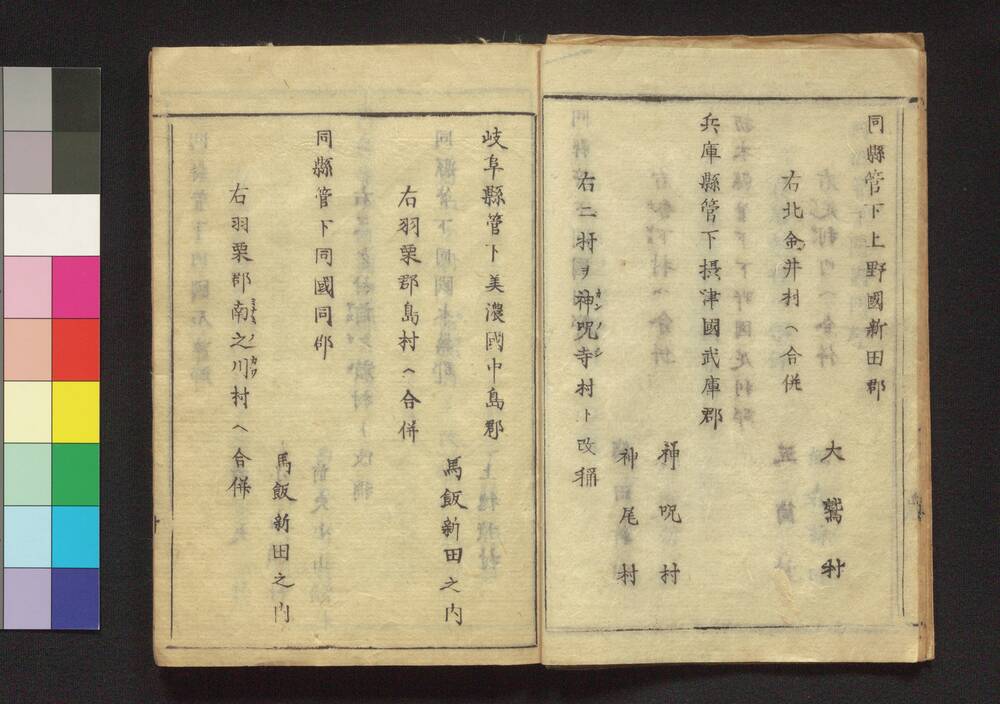 同縣管下上野國新田郡
大鷲村
右北金井村ヘ合併
兵庫縣管下摂津國武庫郡
神呪村
神尾村
右二村ヲ神呪寺村ト改稱
カンノウジ
岐阜縣管下美濃國中島郡
馬飯新田之内
右羽栗郡島村ヘ合併
同縣管下同國同郡
馬飯新田之内
右羽栗郡南之川村ヘ合併